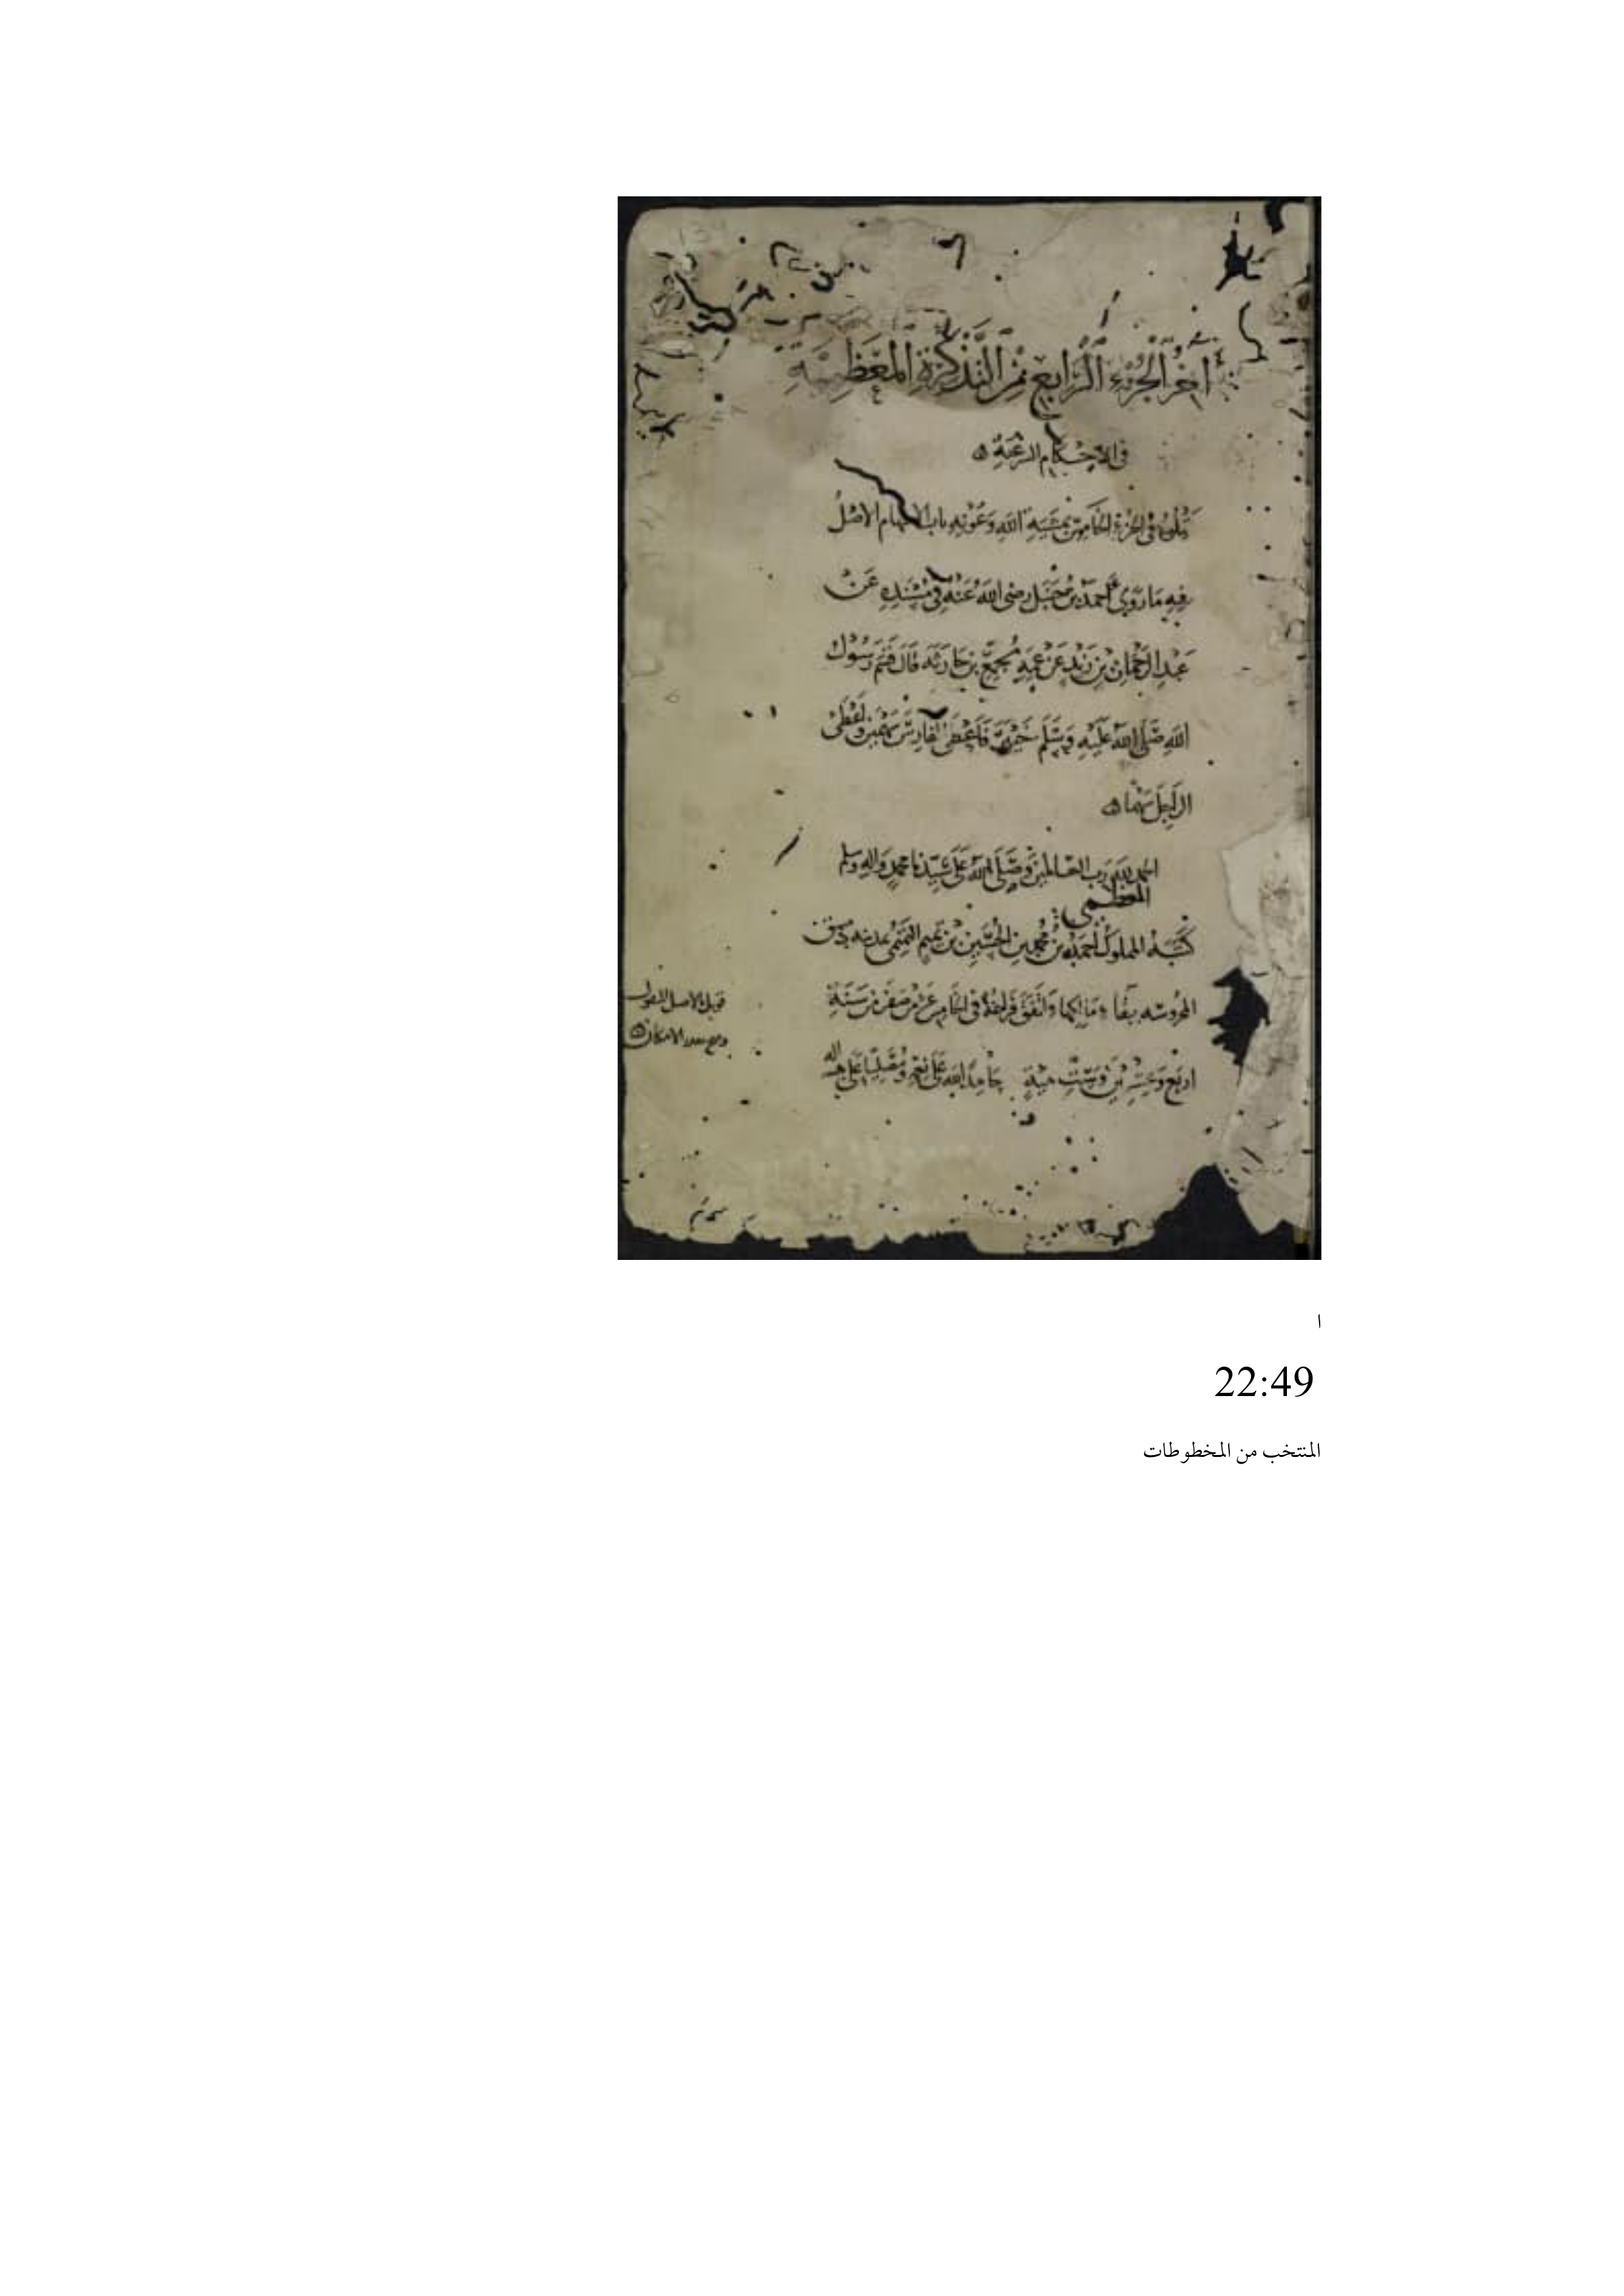 آخِرُ الجُزْءِ الرَّابِعِ مِنَ التَّذْكِرَةِ المُعَظَّمِيَّةِ
في الأحكام الشرعية
يتلوه في الجزء الخامس بمشية الله وعونه باب الاسهام الاصل
فيه ما روى أحمد بن حنبل رضي الله عنه في مسنده عن
عبد الرحمان بن يزيد عن عمه مجمع بن جارية قال قسم رسول
الله صلى الله عليه وسلم خيبر فأعطى الفارس سهمين وأعطى
الراجل سهما
الحمد لله رب العالمين وصلى الله على سيدنا محمد وآله وسلم
المعظمي
كتبه المملوك أحمد بن محمد بن الحسين بن تميم التميمي بمدينة دمشق
المحروسة ببقاء مالكها واتفق فراغه في الخامس عشر من صفر من سنة
اربع وعشرين وست مية حامدا لله على نعمه ومصليا على
قوبل بالاصل المنقول
وصح بقدر الامكان
ا
22:49
المنتخب من المخطوطات